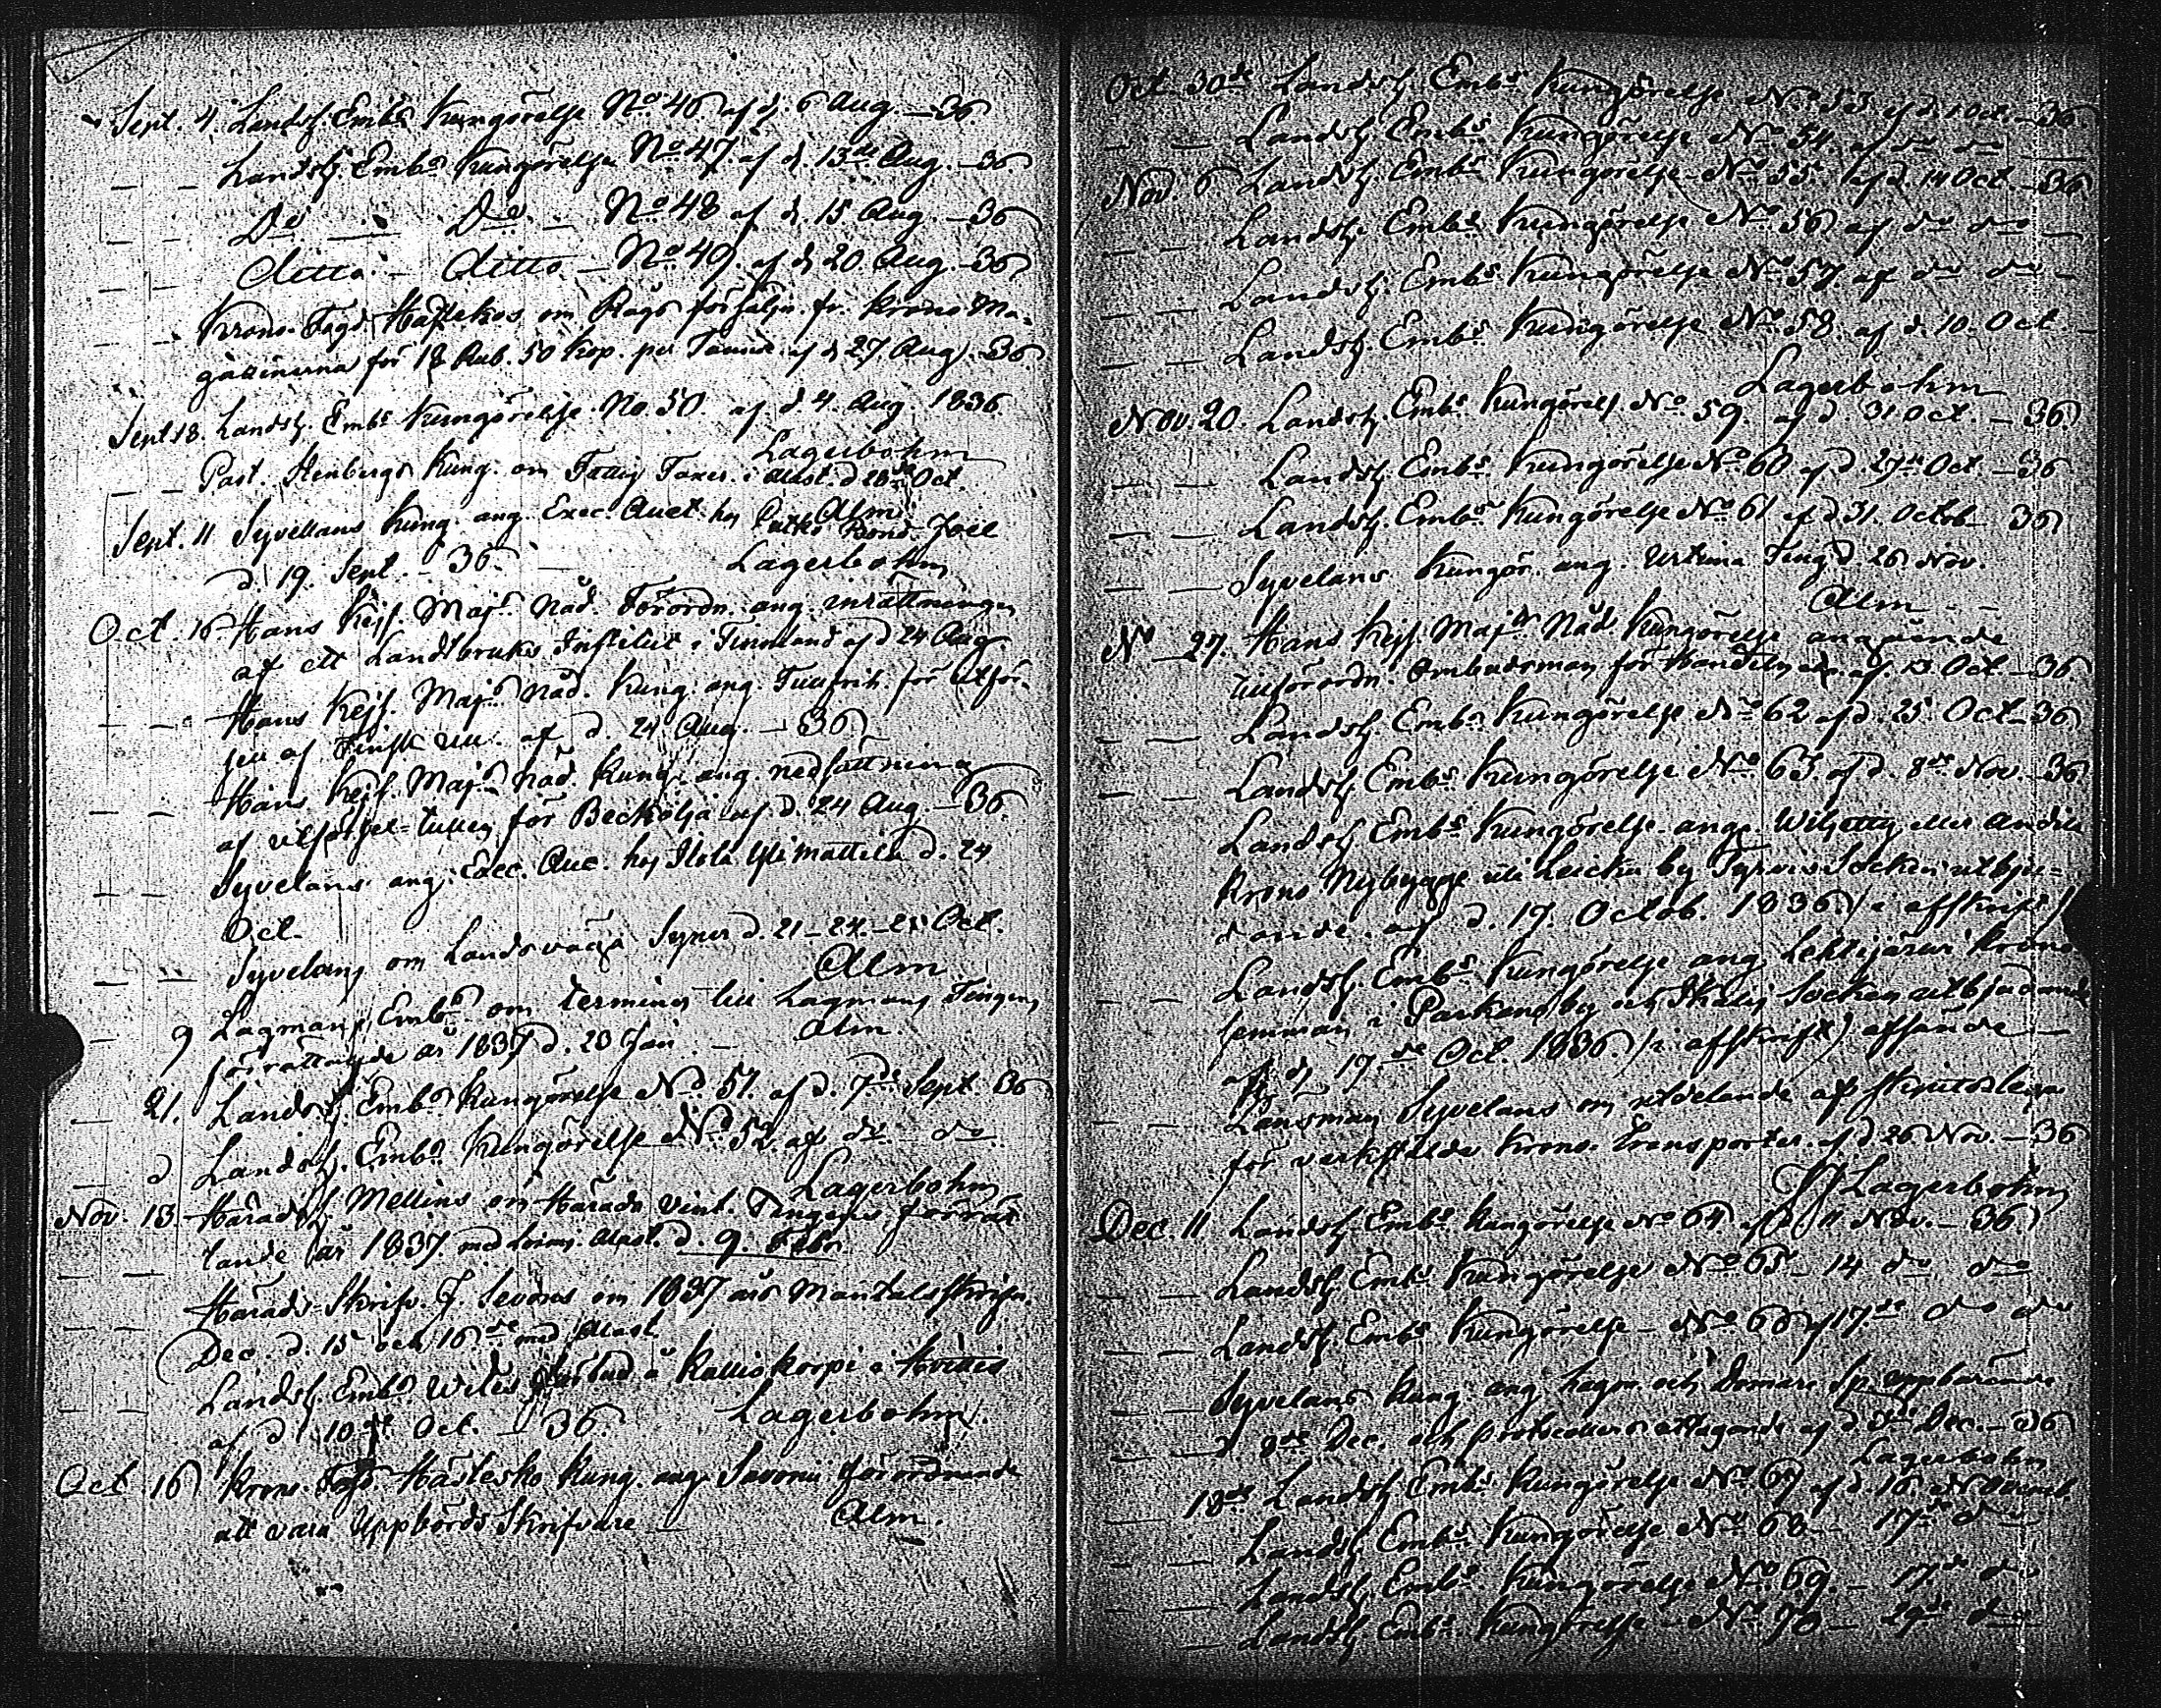 Sept. 4. Landsh. Embs Kungörelse No 46 af d. 6 Aug. — 36
— — Landsh. Embs Kungörelse No 47 af d. 13de Aug. — 36
— — Do — Do — No 48 af d. 15 Aug. — 36
— — ditto — ditto — No 49 af d. 20 Aug. — 36
— — Krono Fogd. Hästeskos om Rågs försäljn. fr. Krono Ma-
gazinerna för 18 Rub. 50 Kop. per Tunna af d. 27 Aug. 36
Sept 18. Landsh. Embs Kungörelse No 50 af d. 4. Aug. 1836
Lagerbohm
— — Past. Stenbergs Kung. om Fattig Taxer. i Mast. d. 20de Oct.
Alm
Sept. 11 Syvelans Kung. ang. Exec. Auct. hos Joel
d. 19. Sept. — 36. Lagerbohm
Oct. 16 Hans Kejs. Majs Nåd. Förordn. ang. inrättningen
af ett Landtbruks Institut i Finnland af d 24 Aug.
— — Hans Kejs. Majs Nåd. Kung. ang. Tullfrih. för Utför-
seln af Finsk Ull. af d. 24 Aug. — 36
— — Hans Kejs. Majs Nåd. Kung. ang. nedsättning
af utförsel-tullen för Beckolja af d. 24 Aug. — 36.
— — Syvelans ang. Exec. Auc. hos Ilola Yli Mattila d. 24
Oct.
— — Syvelans om Landsvägs Syner d. 21 — 24 — 25 Oct.
Alm
— 9 Lagmans Embs om terminen till Lagmans Tingens
förrättande år 1837 d. 20 Jan. — Alm.
— 21. Landsh. Embs Kungörelse No 51. af d. 7de Sept. 36
— d Landsh. Embs Kungörelse No 52 af do — do.
Lagerbohm
Nov. 13. Häradsh. Mellins om Härads Vint. Tingens förrät-
— — tande år 1837. med Mast. d. 9. Febr.
— — Härads-Skrifv. J. Sevons om 1837 års Mantalsskrifn.
Dec. d. 15 och 16de med Mast.
— — Landsh. Embs Wites förbud å Kalliokorpi i Hvittis
af d. 10de Oct. — 36. Lagerbohm.
Oct 16 Krono Fogd. Hästesko Kung. ang. Savonii förordnande
att vara Uppbörds Skrifvare — Alm.
Oct. 30de Landsh. Embs Kungörelse No 53 af d. 1 Oct. — 36
— — Landsh. Embs Kungörelse No 54. af do do —
Nov. 6 Landsh. Embs Kungörelse No 55. af d. 14 Oct. — 36
— — Landsh. Embs Kungörelse No 56 af do do —
— — Landsh. Embs Kungörelse No 57. af do do —
— — Landsh. Embs Kungörelse No 58. af d. 10. Oct —
Lagerbohm
Nov. 20. Landsh. Embs Kungörels. No 59. af d 31 Oct. — 36.
— — Landsh. Embs Kungörelse No 60 af d. 27de Oct — 36
— — Landsh. Embs Kungörelse No 61 af d 31. Octob — 36
— — Syvelans Kungör. ang. Urtima Ting d. 26 Nov.
Alm —
No — 27. Hans Kejs. Majts Nåd Kungörelse angående
tillförordn. Ombudsman för Handeln af 13. Oct. — 36.
— — Landsh. Embs Kungörelse No 62 af d. 25. Oct — 36
— — Landsh. Embs Kungörelse No 63 af d. 8de Nov. — 36
Landsh. Embs Kungörelse ang. eller
Krono Nybygge uti by Tyrvis Socken utbju-
dande. af d. 17. Octob. 1836 (i afskrift)
— — Landsh. Embs Kungörelse ang. Krono
hemman i Parkano by och Ikalis Socken utbjudande
af d. 19de Oct. 1836. (i afskrift) —
— — Länsman Syvelans om utdelande af skjutslega
för verkstälde Krono. transporter. af d 26 Nov. — 36
Lagerbohm
Dec. 11 Landsh. Embs Kungörelse No 64 af d. 11 Nov. — 36
— — Landsh. Embs Kungörelse No 65 — 14 do do
— — Landsh. Embs Kungörelse — No 66 af 17de do do
— — Syvelans Kung. ang. Lagm. och Domare Sp. uppbärande
— d. 8de Dec. och protocollers uttagande af d. Dec. — 36
Lagerbohm
18de Landsh. Embs Kungörelse No 67 af d. 16 Novemb.
— — Landsh. Embs Kungörelse No 68 — 17de do
— — Landsh. Embs Kungörelse No 69. — 17de do
— Landsh. Embs Kungörelse — No 70 — 29de do